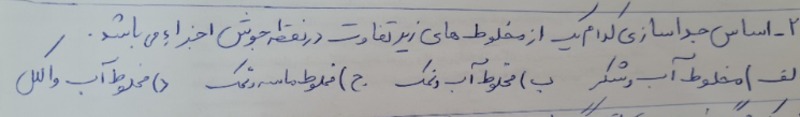 ۲- اساس جداسازی کدام یک از مخلوط های زیر تفاوت در نقطه جوش اجزاء می باشد.
الف) مخلوط آب و شکر ب) مخلوط آب و نمک ج) مخلوط ماسه و نمک د) مخلوط آب و الکل